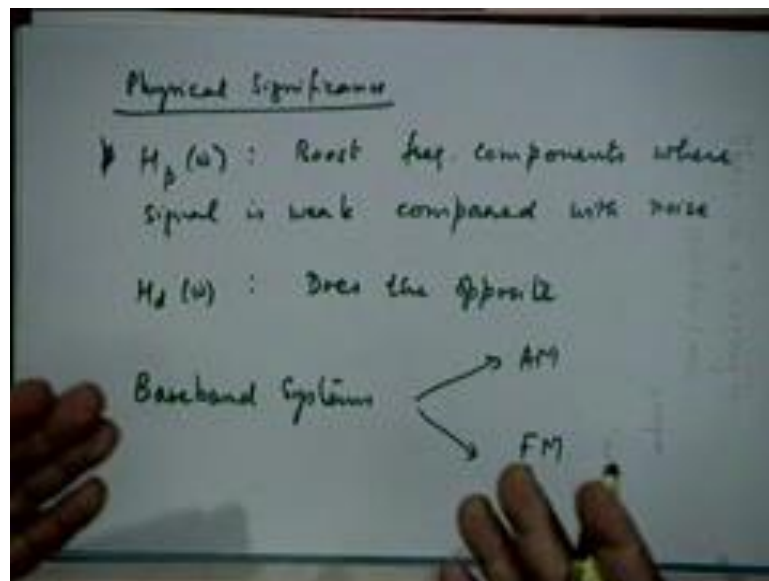 Physical Significance
H_p(ω) : Boost freq. components where
signal is weak compared with noise
H_d(ω) : Does the opposite
Baseband Systems
AM
FM